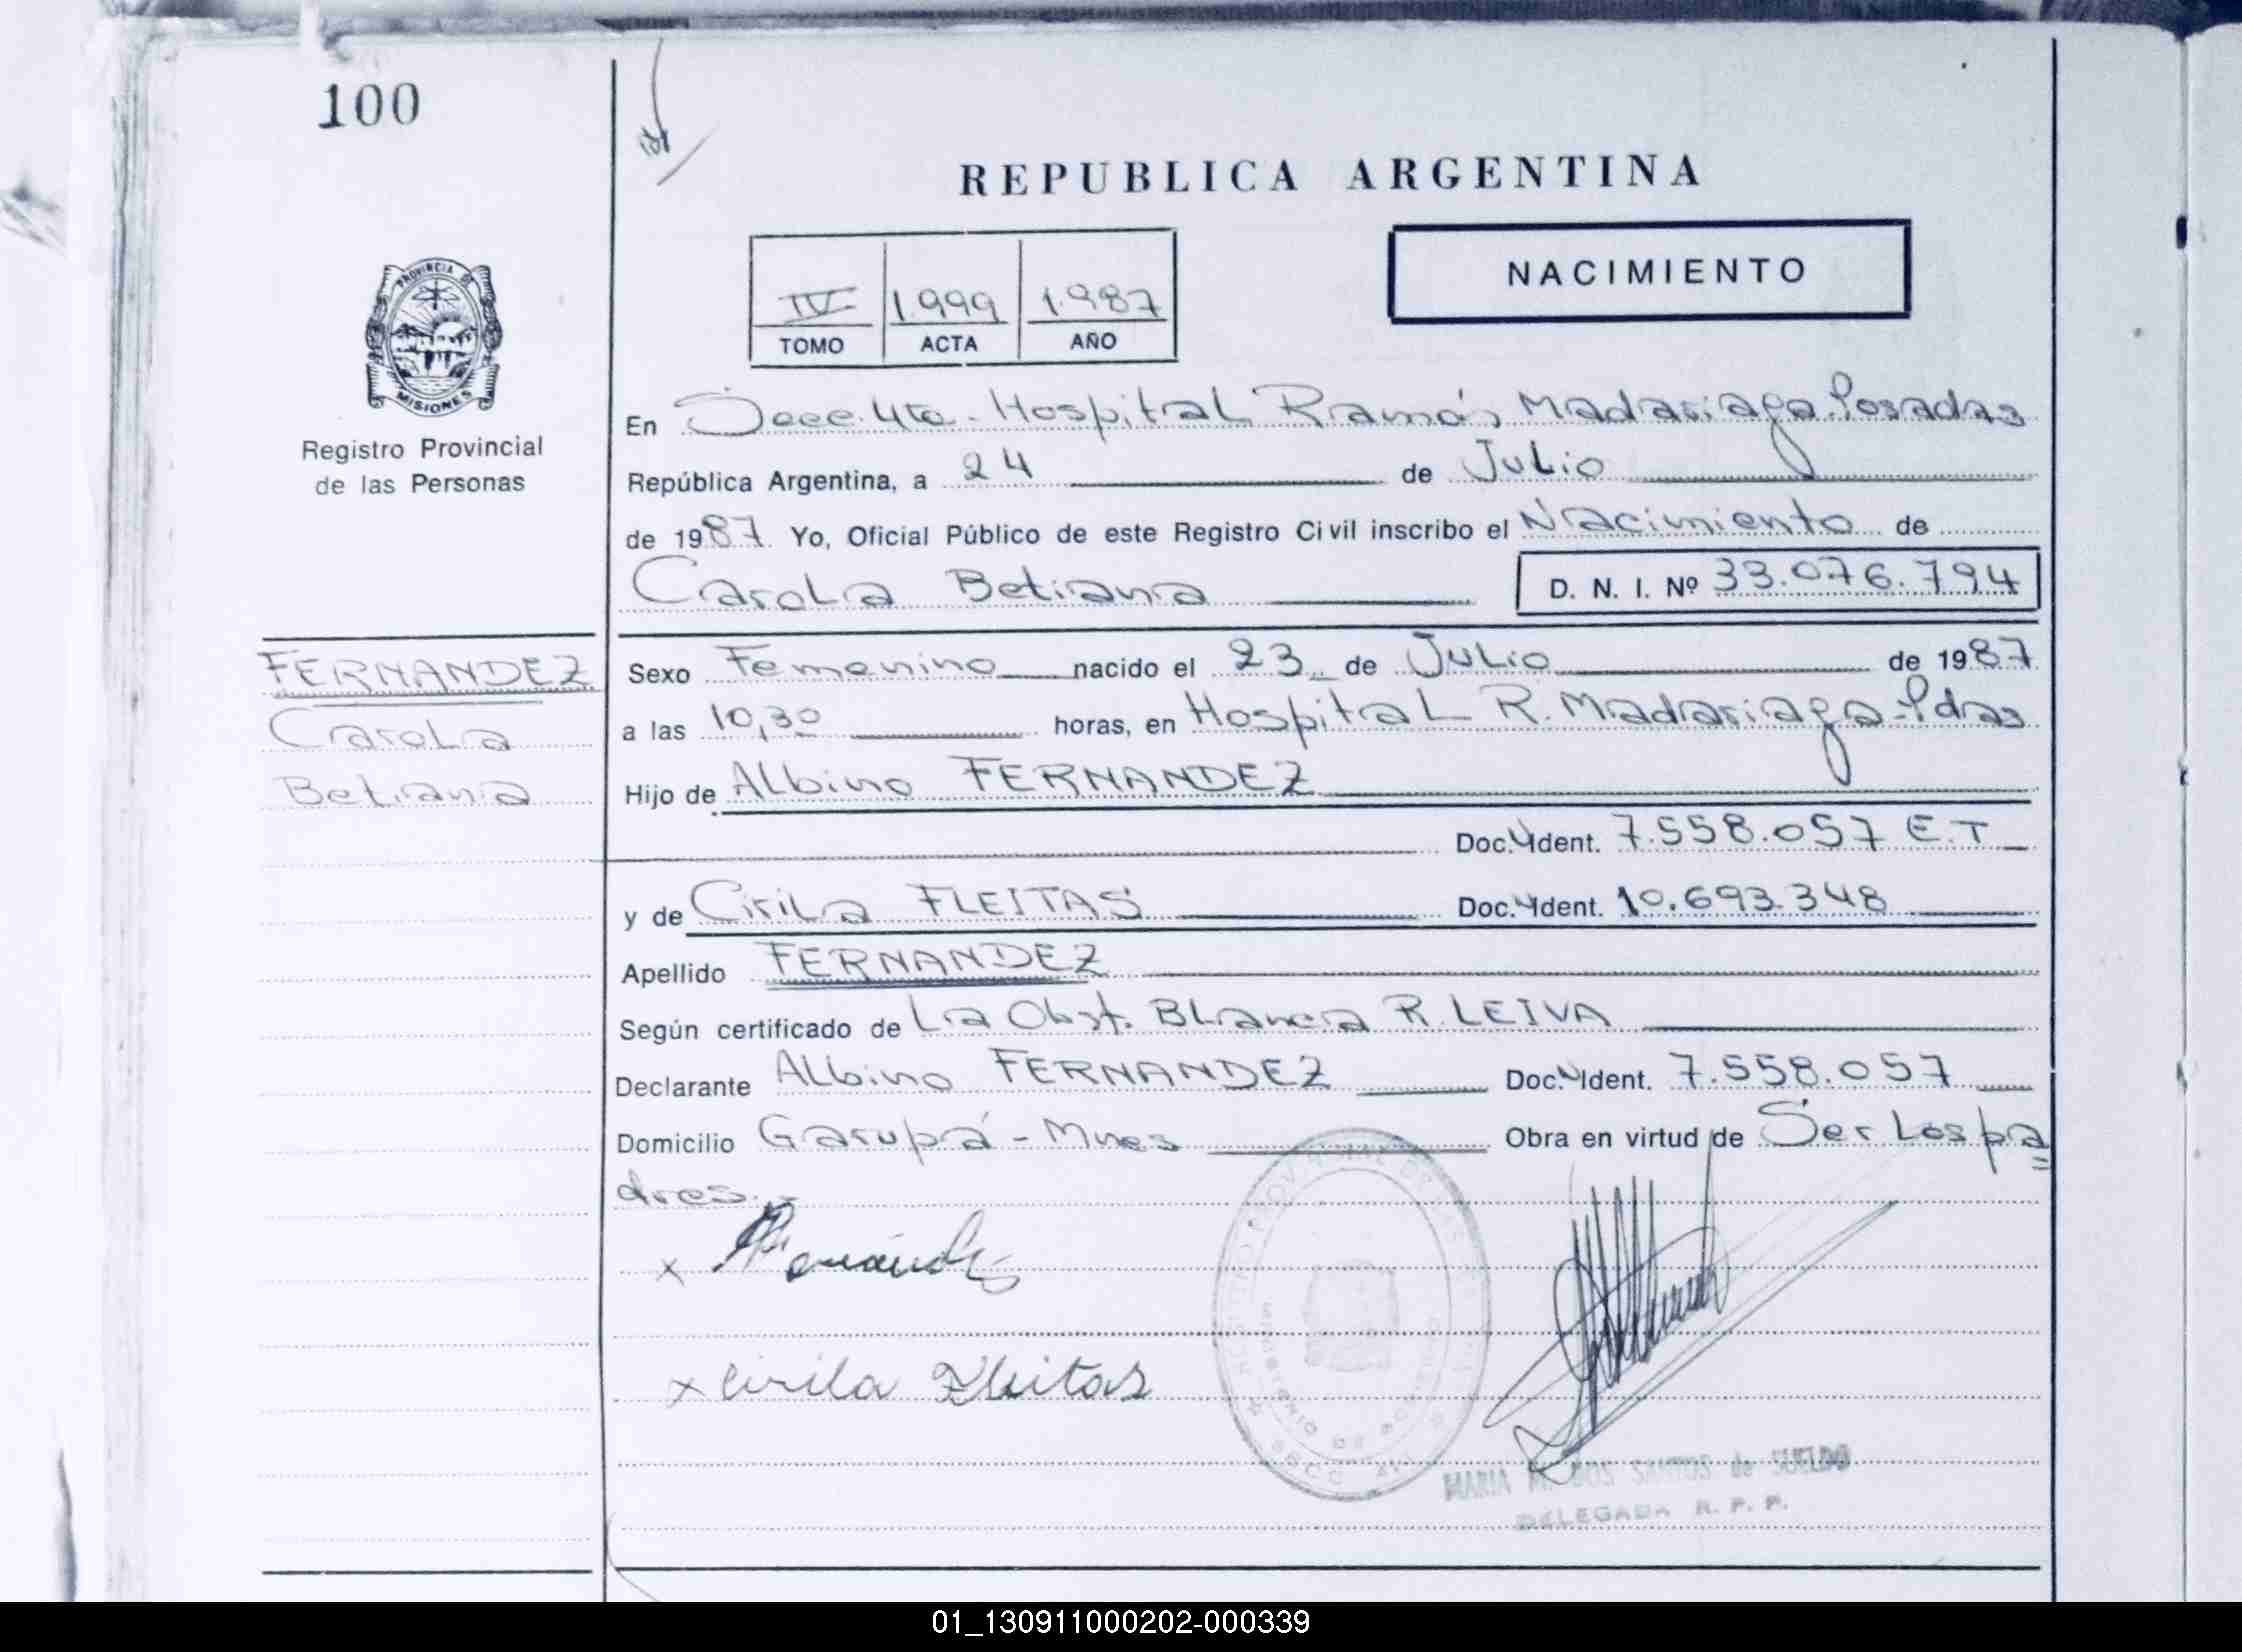 100
REPUBLICA ARGENTINA
PROVINCIA DE
MISIONES
Registro Provincial
de las Personas
IV 1.999 1.987
TOMO ACTA AÑO
NACIMIENTO
En Secc. 4ta - Hospital Ramón Madariaga Posadas
República Argentina, a 24 de Julio
de 1987. Yo, Oficial Público de este Registro Civil inscribo el Nacimiento de
Carola Betiana D. N. I. Nº 33.076.794
FERNANDEZ
Carola
Betiana
Sexo Femenino nacido el 23 de Julio de 1987
a las 10,30 horas, en Hospital R. Madariaga - Pdas
Hijo de Albino FERNANDEZ
Doc. Ident. 7.558.057 E.T
y de Cirila FLEITAS Doc. Ident. 10.693.348
Apellido FERNANDEZ
Según certificado de La Obst. Blanca R. LEIVA
Declarante Albino FERNANDEZ Doc. Ident. 7.558.057
Domicilio Garupá - Mnes Obra en virtud de Ser Los pa
dres.-
x Fernández
x Cirila Fleitas
MARIA M. DOS SANTOS de SUELDO
DELEGADA R. P. P.
01_130911000202-000339